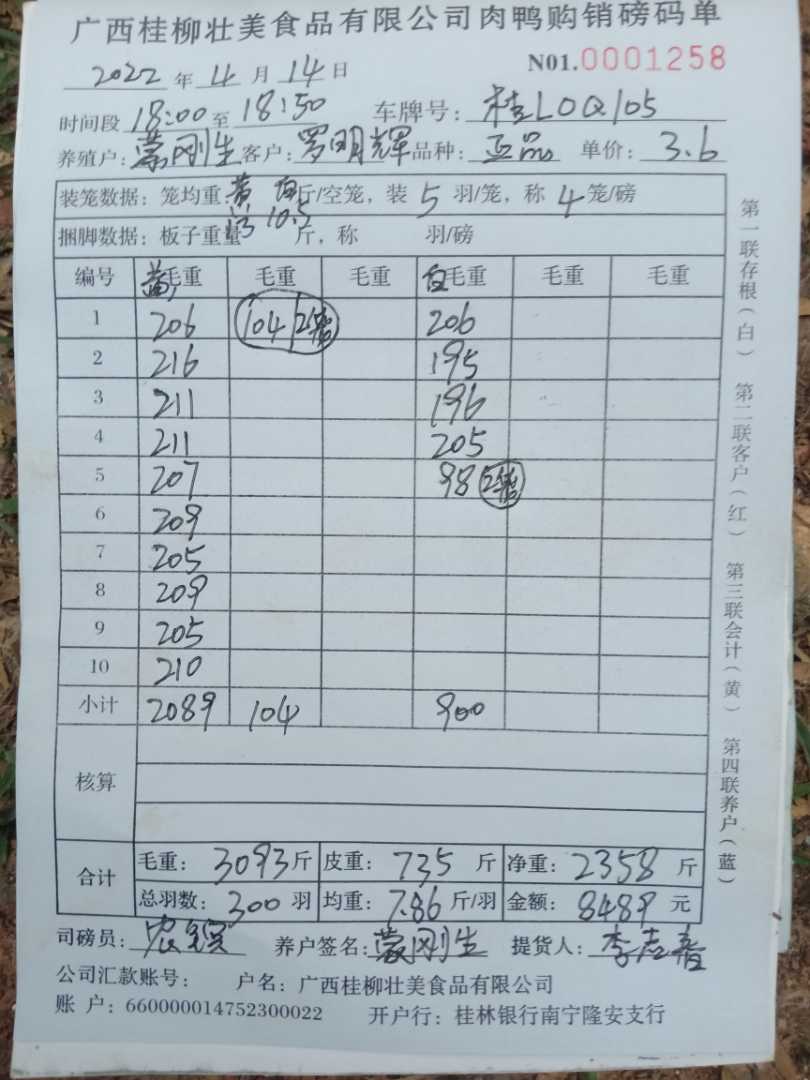 广西桂柳壮美食品有限公司肉鸭购销磅码单
2022 年 4 月 14 日 N01.0001258
时间段 18:00 至 18:50 车牌号: 桂L0Q105
养殖户: 蒙刚生 客户: 罗明辉 品种: 正品 单价: 3.6
装笼数据: 笼均重 黄 白 斤/空笼, 装 5 羽/笼, 称 4 笼/磅
13 10.5
捆脚数据: 板子重量 斤, 称 羽/磅
编号 黄毛重 毛重 毛重 白毛重 毛重 毛重
1 206 104 2笼 206
2 216 195
3 211 196
4 211 205
5 207 98 2笼
6 209
7 205
8 209
9 205
10 210
小计 2089 104 900
核算
合计 毛重: 3093 斤 皮重: 735 斤 净重: 2358 斤
总羽数: 300 羽 均重: 7.86 斤/羽 金额: 8489 元
司磅员: 养户签名: 蒙刚生 提货人: 李
公司汇款账号: 户名: 广西桂柳壮美食品有限公司
账 户: 660000014752300022 开户行: 桂林银行南宁隆安支行
第一联存根(白) 第二联客户(红) 第三联会计(黄) 第四联养户(蓝)